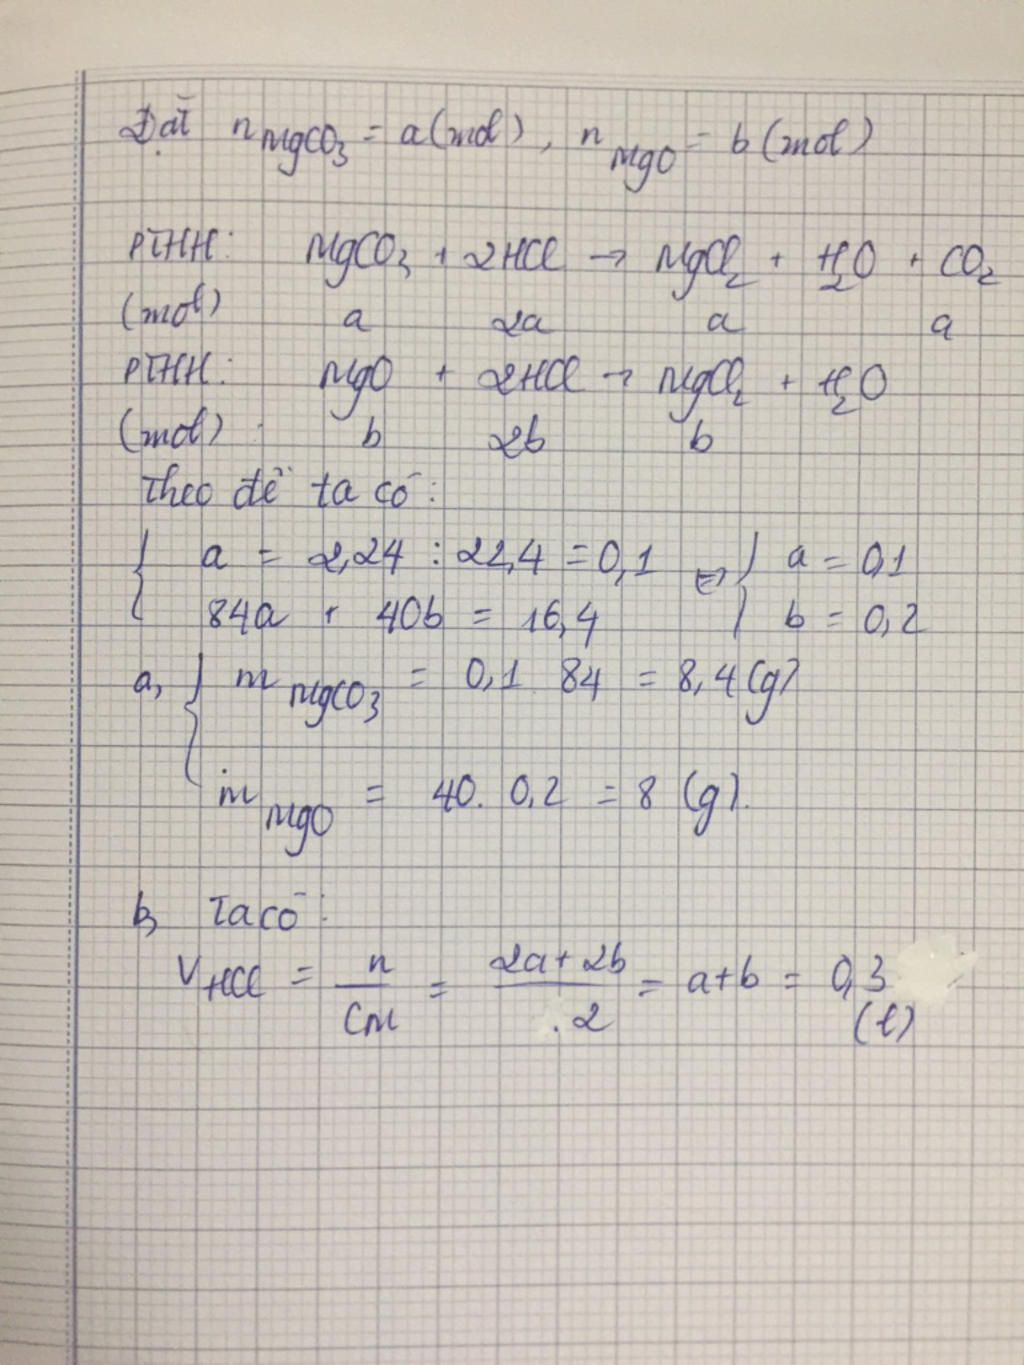 Đặt n MgCO3 = a (mol), n MgO = b (mol)
PTHH: MgCO3 + 2HCl → MgCl2 + H2O + CO2
(mol) a 2a a a
PTHH: MgO + 2HCl → MgCl2 + H2O
(mol) : b 2b b
Theo đề ta có:
{ a = 2,24 : 22,4 = 0,1 ⇔ { a = 0,1
84a + 40b = 16,4 b = 0,2
a, { m MgCO3 = 0,1 84 = 8,4 (g)
m MgO = 40. 0,2 = 8 (g).
b, Ta có:
V HCl = n / CM = 2a + 2b / 2 = a+b = 0,3
(l)